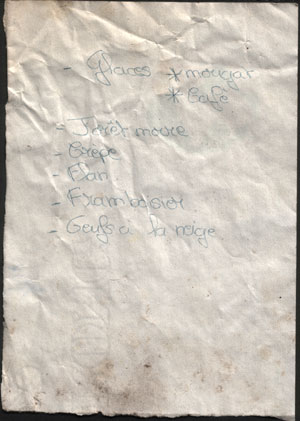 - Glaces * nougat
* Café
- Forêt noire
- Crêpe
- Flan
- Framboisier
- Oeufs a la neige